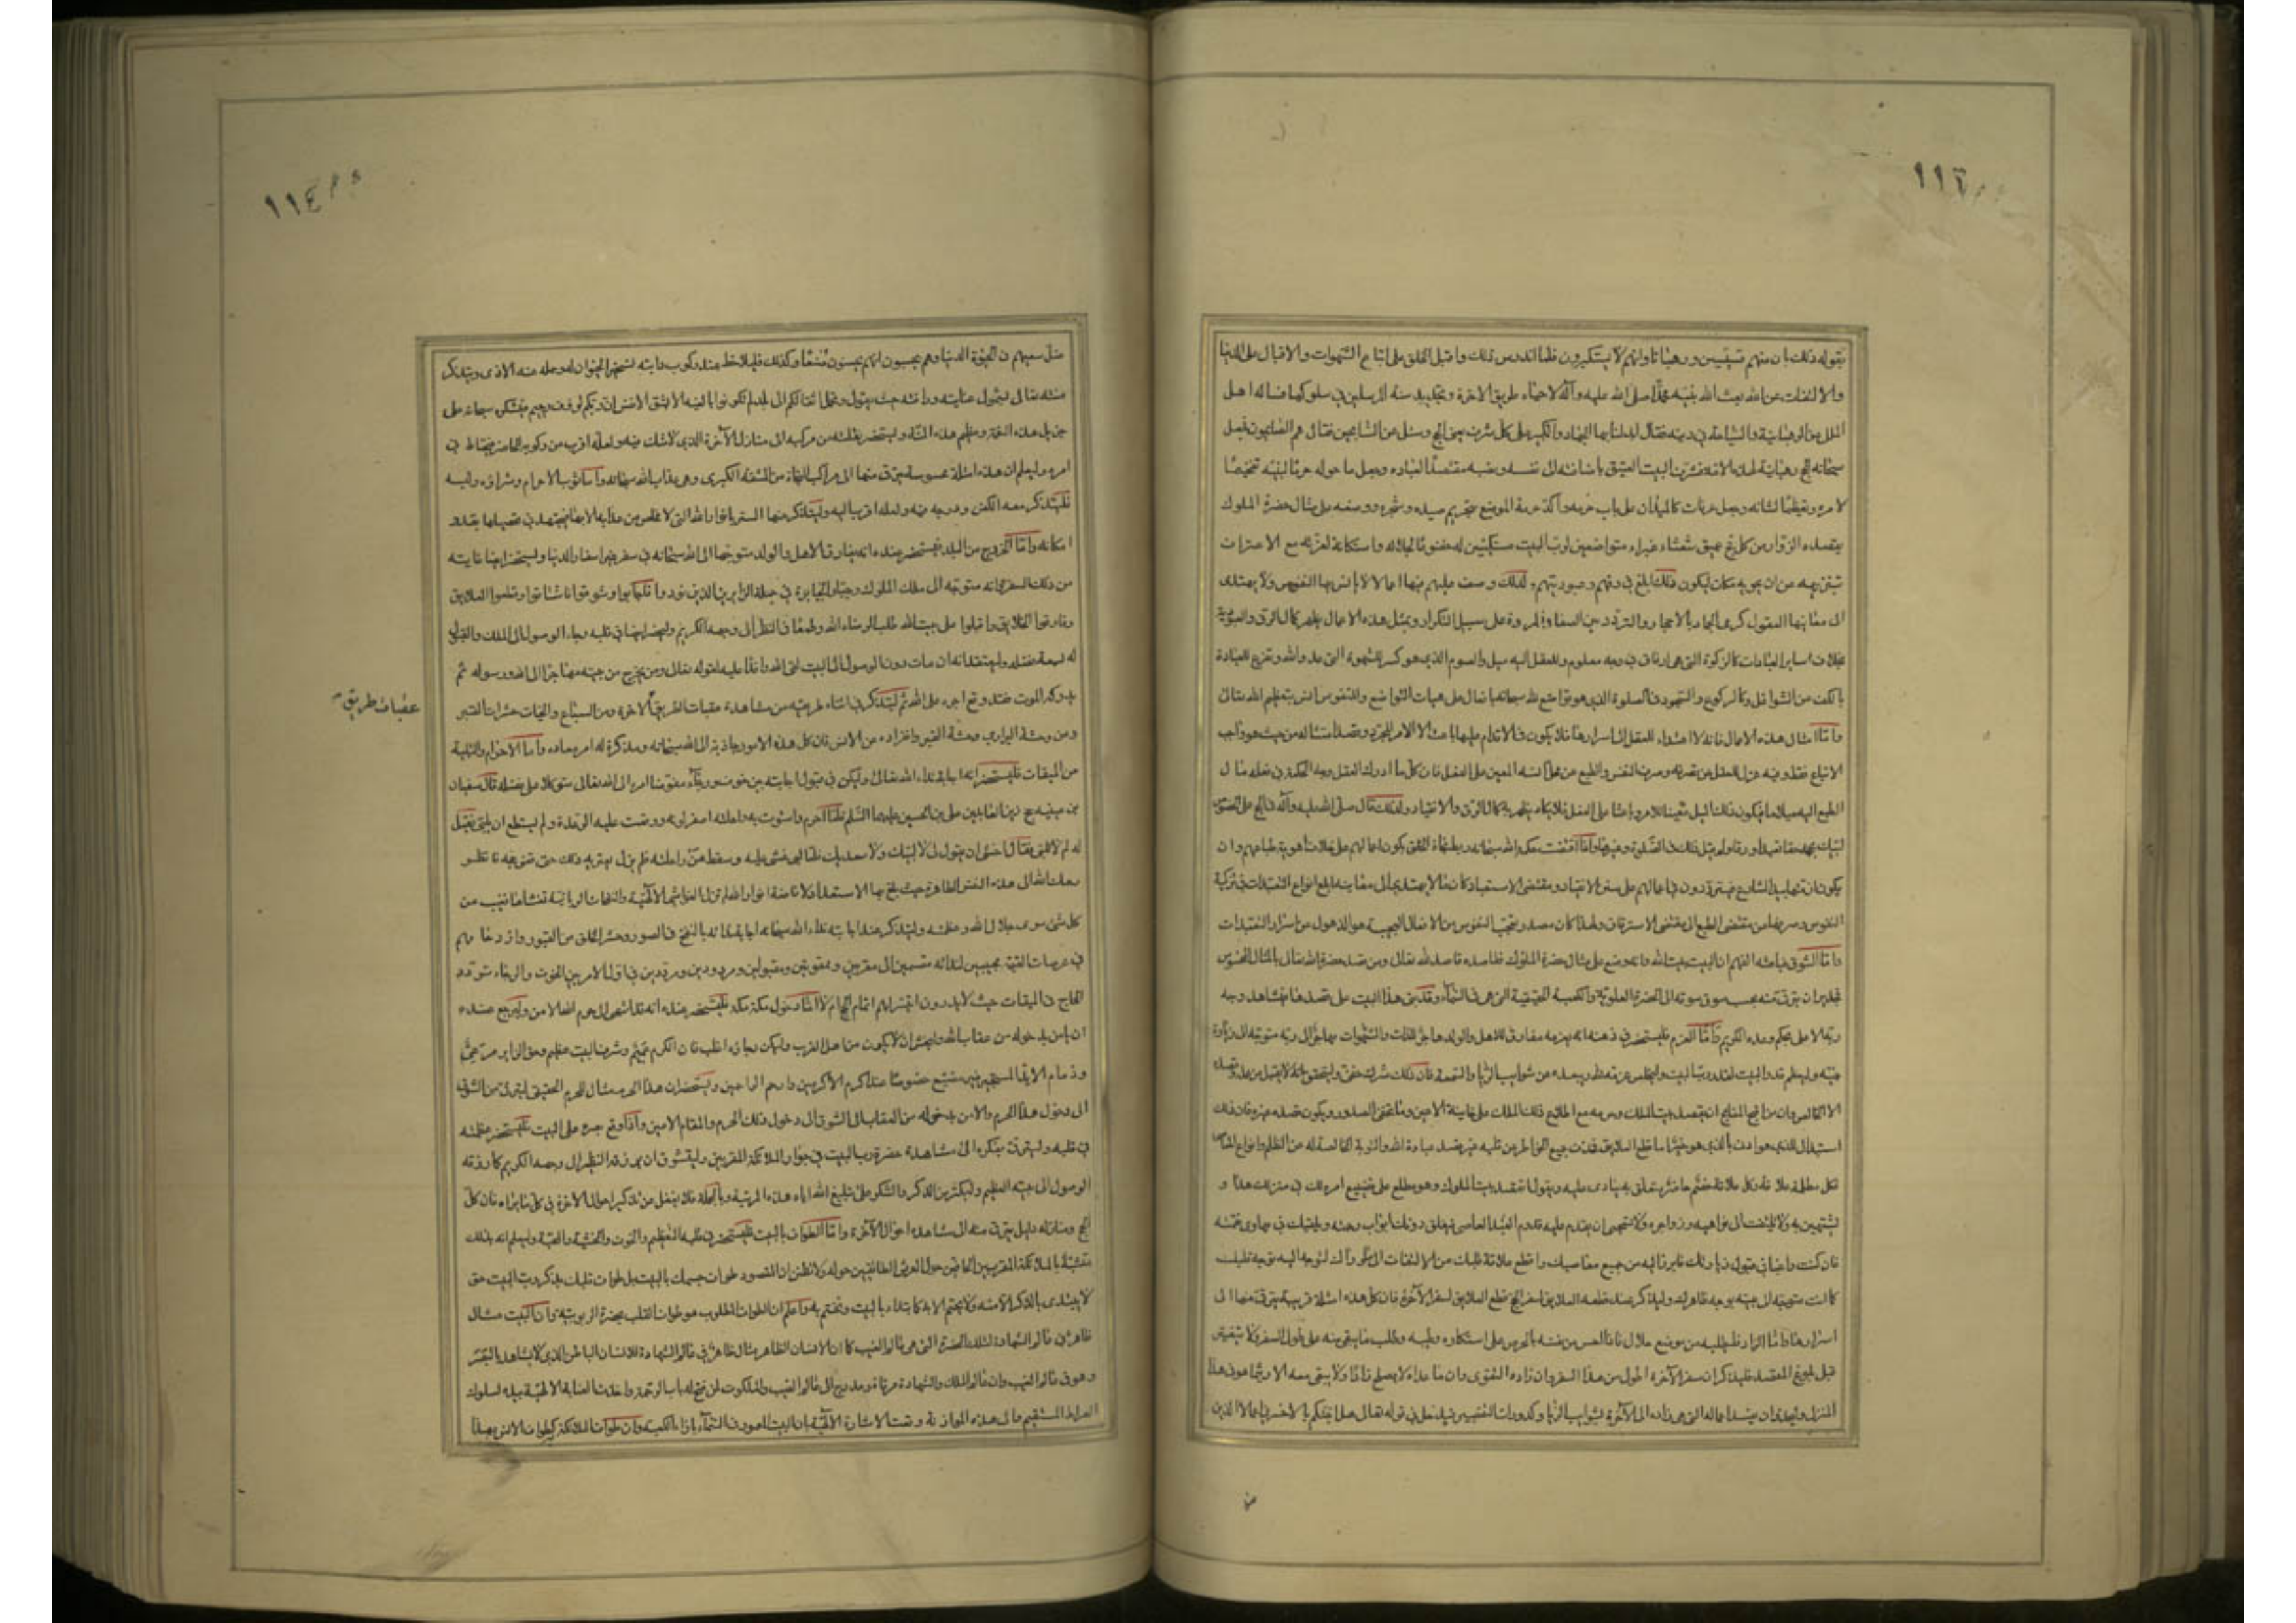 ١١٦
بقوله ذلك بان منهم قسيسين ورهبانا وانهم لا يستكبرون فلما اندرس ذلك واقبل الخلق على اتباع الشهوات والاقبال على الدنيا
والالتفات عن الله بعث الله نبيه محمدا صلى الله عليه وآله لاحياء طريق الاخرة وتجديد سنة المرسلين في سلوكها فساله اهل
الملل عن الرهبانية والسياحة في دينه فقال ابدلنا بها الجهاد والتكبير على كل شرف يعنى الحج وسئل عن السائحين فقال هم الصائمون فجعل
سبحانه الحج رهبانية لهذه الامة فشرف البيت العتيق باضافته الى نفسه ونصبه مقصدا لعباده وجعل ما حوله حرما لبيته تفخيما
لامره وتعظيما لشانه وجعل عرفات كالميدان على باب حرمه واكد حرمة الموضع بتحريم صيده وشجره ووضعه على مثال حضرة الملوك
يقصده الزوار من كل فج عميق شعثاء غبراء متواضعين لرب البيت مستكينين له خضوعا لجلاله واستكانة لعزته مع الاعتراف
بتنزيهه من ان يحويه مكان ليكون ذلك ابلغ في رقهم وعبوديتهم ولذلك وضف عليهم فيها اعمالا لا يانس بها النفوس ولا يهتدى
الى معانيها العقول كرمى الجمار بالاحجار والتردد بين الصفا والمروة على سبيل التكرار وبمثل هذه الاعمال يظهر كمال الرق والعبودية
بخلاف ساير العبادات كالزكوة التي هي ارفاق في وجه معلوم وللعقل اليه ميل والصوم الذي هو كسر للشهوة التي عدو الله وتفرغ للعبادة
بالكف من الشواغل وكالركوع والسجود في الصلوة الذي هو تواضع لله سبحانه بافعال على هيات التواضع وللنفوس انس بتعظيم الله تعالى
واما امثال هذه الاعمال فانه لا اهتداء للعقل الى اسرارها فلا يكون في الاقدام عليها باعث الا الامر المجرد وقصد امتثاله من حيث هو واجب
الاتباع فقط وفيه عزل للعقل عن تصرفه وصرف النفس والطبع عن محل انسه المعين على العقل فان كل ما ادرك العقل وجه الحكمة في فعله مال
الطبع اليه ميلا ما فيكون ذلك الميل معينا للامر وباعثا على الفعل فلا يكاد يظهر به كمال الرق والانقياد ولذلك قال صلى الله عليه وآله في الحج على الخصوص
لبيك بحجة حقا تعبدا ورقا ولم يقل ذلك في الصلوة وغيرها واما اقتضت حكمة الله سبحانه ربط نجاة الخلق بكون اعمالهم على خلاف اهوية طباعهم وان
يكون ازمتها بيد الشارع فيترددون في اعمالهم على سنن الانقياد ومقتضى الاستعباد كان ما لا يهتدى الى معانيه ابلغ انواع التعبدات في تزكية
النفوس وصرفها من مقتضى الطبع الى مقتضى الاسترقاق ولهذا كان مصدر تعجب النفوس من الافعال العجيبة هو الذهول عن اسرار التعبدات
واما الشوق فباعثه الفهم ان البيت بيت الله وانه وضع على مثال حضرة الملوك فقاصده قاصد لله تعالى ومن قصد حضرة الله تعالى بالمثال المحسوس
فجدير ان يترقى منه بحسب سوق شوقه الى الحضرة العلوية والكعبة الحقيقية التي هي في السماء وقد بنى هذا البيت على قصدها فيشاهد وجه
ربه الاعلى بحكم وعده الكريم واما العزم فليستحضر في ذهنه انه بعزمه مفارق للاهل والولد هاجر للذات والشهوات مهاجر الى ربه متوجه الى زيارة
بيته وليعظم قدر البيت لقدر رب البيت وليخلص عزمه لله ويبعده من شوايب الريا والسمعة فان ذلك شرك خفى وليتحقق انه لا يقبل من عمله وقصده
الا الخالص وان من اقبح القبايح ان يقصد بيت الملك وحرمه مع اطلاع ذلك الملك على خاينة الاعين وما تخفى الصدور ويكون قصده غيره فان ذلك
استبدال للذي هو ادنى بالذي هو خير واما قطع العلايق فحذف جميع الخواطر عن قلبه غير قصد عبادة الله والتوبة الخالصة له من الظلم وانواع المعاصى
فكل مظلمة علاقة وكل علاقة خصم حاضر متعلق به ينادى عليه ويقول اتقصد بيت الملوك وهو مطلع على تضييع امره لك في منزلك هذا و
تستهين به ولا تلتفت الى نواهيه وزواجره ولا تستحيى ان يقدم عليه قدوم العبد العاصى فيغلق دونك ابواب رحمته ويلقيك في مهاوى نقمته
فان كنت راغبا في قبول زيارتك فابرز اليه من جميع معاصيك واقطع علاقة قلبك من الالتفات الى ما وراك لتوجه اليه بوجه قلبك
كما انت متوجه الى بيته بوجه ظاهرك وليذكر عند قطعه العلايق لسفر الحج قطع العلايق لسفر الآخرة فان كل هذه امثلة قريبة يترقى منها الى
اسرارها واما الزاد فليطلبه من موضع حلال فاذا احس من نفسه بالحرص على استكثاره وطيبه وطلب ما يبقى منه على طول السفر ولا يتغير
قبل بلوغ المقصد فليذكر ان سفر الآخرة اطول من هذا السفر وان زاده التقوى وان ما عداه لا يصلح زادا ولا يبقى معه الا ريثما هو في هذا
المنزل وليحذر ان يفسد اعماله التي هي زاده الى الآخرة بشوايب الريا وكدورات التقصير فيدخل في قوله تعالى هل ننبئكم بالاخسرين اعمالا الذين
ضل
١١٤
ضل سعيهم في الحيوة الدنيا وهم يحسبون انهم يحسنون صنعا وكذلك فليلاحظ عند ركوب دابته تسخير الحيوان له وحمله عنه الاذى ويتذكر
منته تعالى بشمول عنايته ورافته حيث يقول وتحمل اثقالكم الى بلد لم تكونوا بالغيه الا بشق الانفس ان ربكم لرؤف رحيم فيشكر سبحانه على
جزيل هذه النعمة وعظيم هذه المنة ويستحضر نقلته من مركبه الى منازل الآخرة الذي لا شك فيه ولعله اقرب من ركوبه الحاضر فيحتاط في
امره وليعلم ان هذه امثلة محسوسة يترقى منها الى مراكب النجاة من الشقة الكبرى وهي عذاب الله سبحانه واما ثوب الاحرام وشراؤه ولبسه
فليتذكر معه الكفن ودرجه فيه ولعله اقرب اليه وليتذكر منها التسربل بانوار الله التي لا مخلص من عذابه الا بها فيجتهد في تحصيلها بقدر
امكانه واما الخروج من البلد فيستحضر عنده انه يفارق الاهل والولد متوجها الى الله سبحانه في سفر غير اسفار الدنيا ويستحضر ايضا غايته
من ذلك السفر وانه متوجه الى ملك الملوك وجبار الجبابرة في جملة الزايرين الذين نودوا فاجابوا وشوقوا فاشتاقوا وقطعوا العلايق
وفارقوا الخلايق واقبلوا على بيت الله طلبا لرضاء الله وطمعا في النظر الى وجهه الكريم وليحضر ايضا في قلبه رجاء الوصول الى الملك والقبول
له بسعة فضله وليعتقد انه ان مات دون الوصول الى البيت لقى الله وافدا عليه لقوله تعالى ومن يخرج من بيته مهاجرا الى الله ورسوله ثم
يدركه الموت فقد وقع اجره على الله ثم ليتذكر في اثناء طريقه من مشاهدة عقبات الطريق عقبات الآخرة ومن السباع والحيات حشرات القبر
ومن وحشة البراري وحشة القبر وانفراده عن الانس فان كل هذه الامور جاذبة الى الله سبحانه ومذكرة له امر معاده واما الاحرام والتلبية
من الميقات فليستحضر انه اجابة نداء الله تعالى وليكن في قبول اجابته بين خوف ورجاء مفوضا امره الى الله تعالى متوكلا على فضله قال سفيان
بن عيينه حج زين العابدين على بن الحسين عليهما السلم فلما احرم واستوت به راحلته اصفر لونه ووقعت عليه الرعدة ولم يستطع ان يلبى فقيل
له لم لا تلبى فقال اخشى ان يقول لى لا لبيك ولا سعديك فلما لبى غشى عليه وسقط عن راحلته فلم يزل يعتريه ذلك حتى قضى حجه فانظر
رحمك الله الى هذه النفس الطاهرة حيث بلغ بها الاستعداد لافاضة انوار الله لم تزل الغواشى الالهية والنفحات الربانية تغشاها فتغيب عن
كل شئ سوى جلال الله وعظمته وليتذكر عند اجابته نداء الله سبحانه اجابة ندائه بالنفخ في الصور وحشر الخلق من القبور وازدحامهم
في عرصات القيمة مجيبين لندائه منقسمين الى مقربين وممقوتين ومقبولين ومردودين ومرددين في اول الامر بين الخوف والرجاء تردد
الحاج في الميقات حيث لا يدرون ايتيسر لهم اتمام الحج ام لا اما دخول مكة فليستحضر عنده انه قد انتهى الى حرم الله الامن وليرج عنده
ان يامن بدخوله من عقاب الله وليخش ان لا يكون من اهل القرب وليكن رجاؤه اغلب فان الكرم عميم وشرف البيت عظيم وحق الزاير مرعى
وذمام اللائذ المستجير غير مضيع خصوصا عند اكرم الاكرمين وارحم الراحمين ويستحضر ان هذا الحرم مثال للحرم الحقيقى ليترقى من الشوق
الى دخول هذا الحرم والامن بدخوله من العقاب الى الشوق الى دخول ذلك الحرم والمقام الامين واذا وقع بصره على البيت فليستحضر عظمته
في قلبه وليترق بفكره الى مشاهدة حضرة رب البيت في جوار الملائكة المقربين وليتشوق ان يرزقه النظر الى وجهه الكريم كما رزقه
الوصول الى بيته العظيم وليكثر من الذكر والشكر على تبليغ الله اياه هذه المرتبة وبالجملة فلا يغفل من تذكير احوال الاخرة في كل ما يراه فان كل
الحج ومنازله دليل يترقى منه الى مشاهدة احوال الآخرة واما الطواف بالبيت فليستحضر في قلبه التعظيم والخوف والخشية والمحبة وليعلم انه بذلك
متشبه بالملائكة المقربين الحافين حول العرش الطائفين حوله ولا تظنن ان المقصود طواف جسمك بالبيت بل طواف قلبك بذكر رب البيت حتى
لا يبتدى بالذكر الا منه ولا يختم الا به كما يبتداء بالبيت وتختم به واعلم ان الطواف المطلوب هو طواف القلب بحضرة الربوبية وان البيت مثال
ظاهر في عالم الشهادة لتلك الحضرة التي هي عالم الغيب كما ان الانسان الظاهر مثال ظاهر في عالم الشهادة للانسان الباطن الذي لا يشاهد بالبصر
وهو في عالم الغيب وان عالم الملك والشهادة مرقاة ومدرج الى عالم الغيب والملكوت لمن فتح له باب الرحمة واخذت العناية الالهية بيده لسلوك
الصراط المستقيم والى هذه الموازنة وقعت الاشارة الالهية بان البيت المعمور في السماء بازاء الكعبة وان طواف الملائكة كطواف الانس بهذا
عقبات طريق